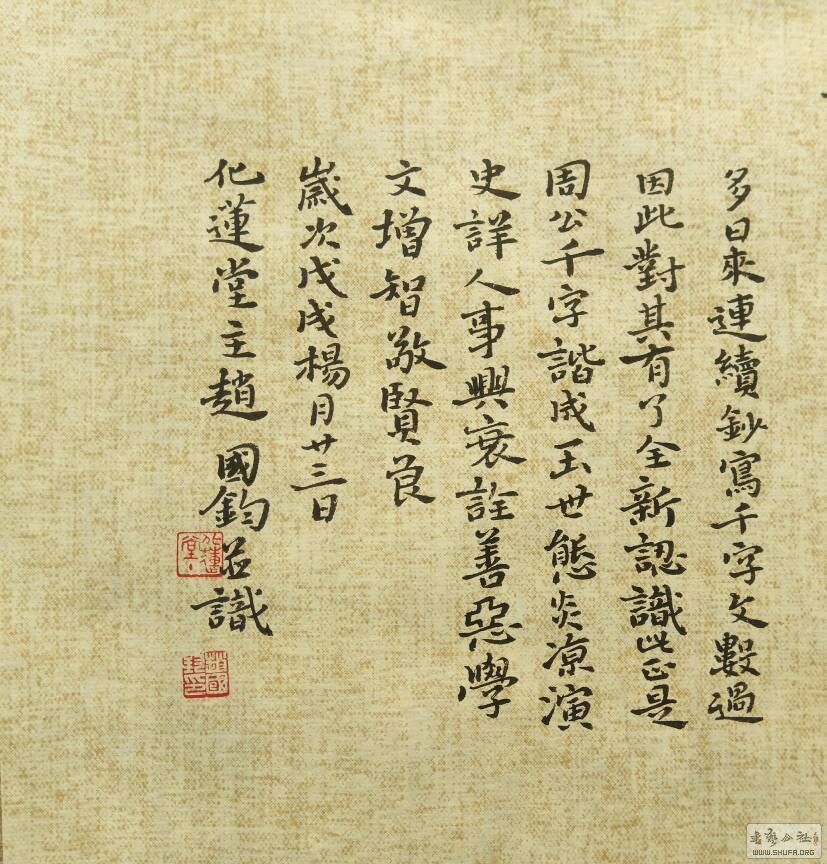 多日來連續鈔寫千字文數過
因此對其有了全新認識此正是
周公千字諧成玉世態炎凉演
史詳人事興衰詮善惡學
文增智敬賢良
歲次戊戌楊月廿三日
化蓮堂主趙國鈞並識
化蓮堂
WWW.SHUFA.ORG